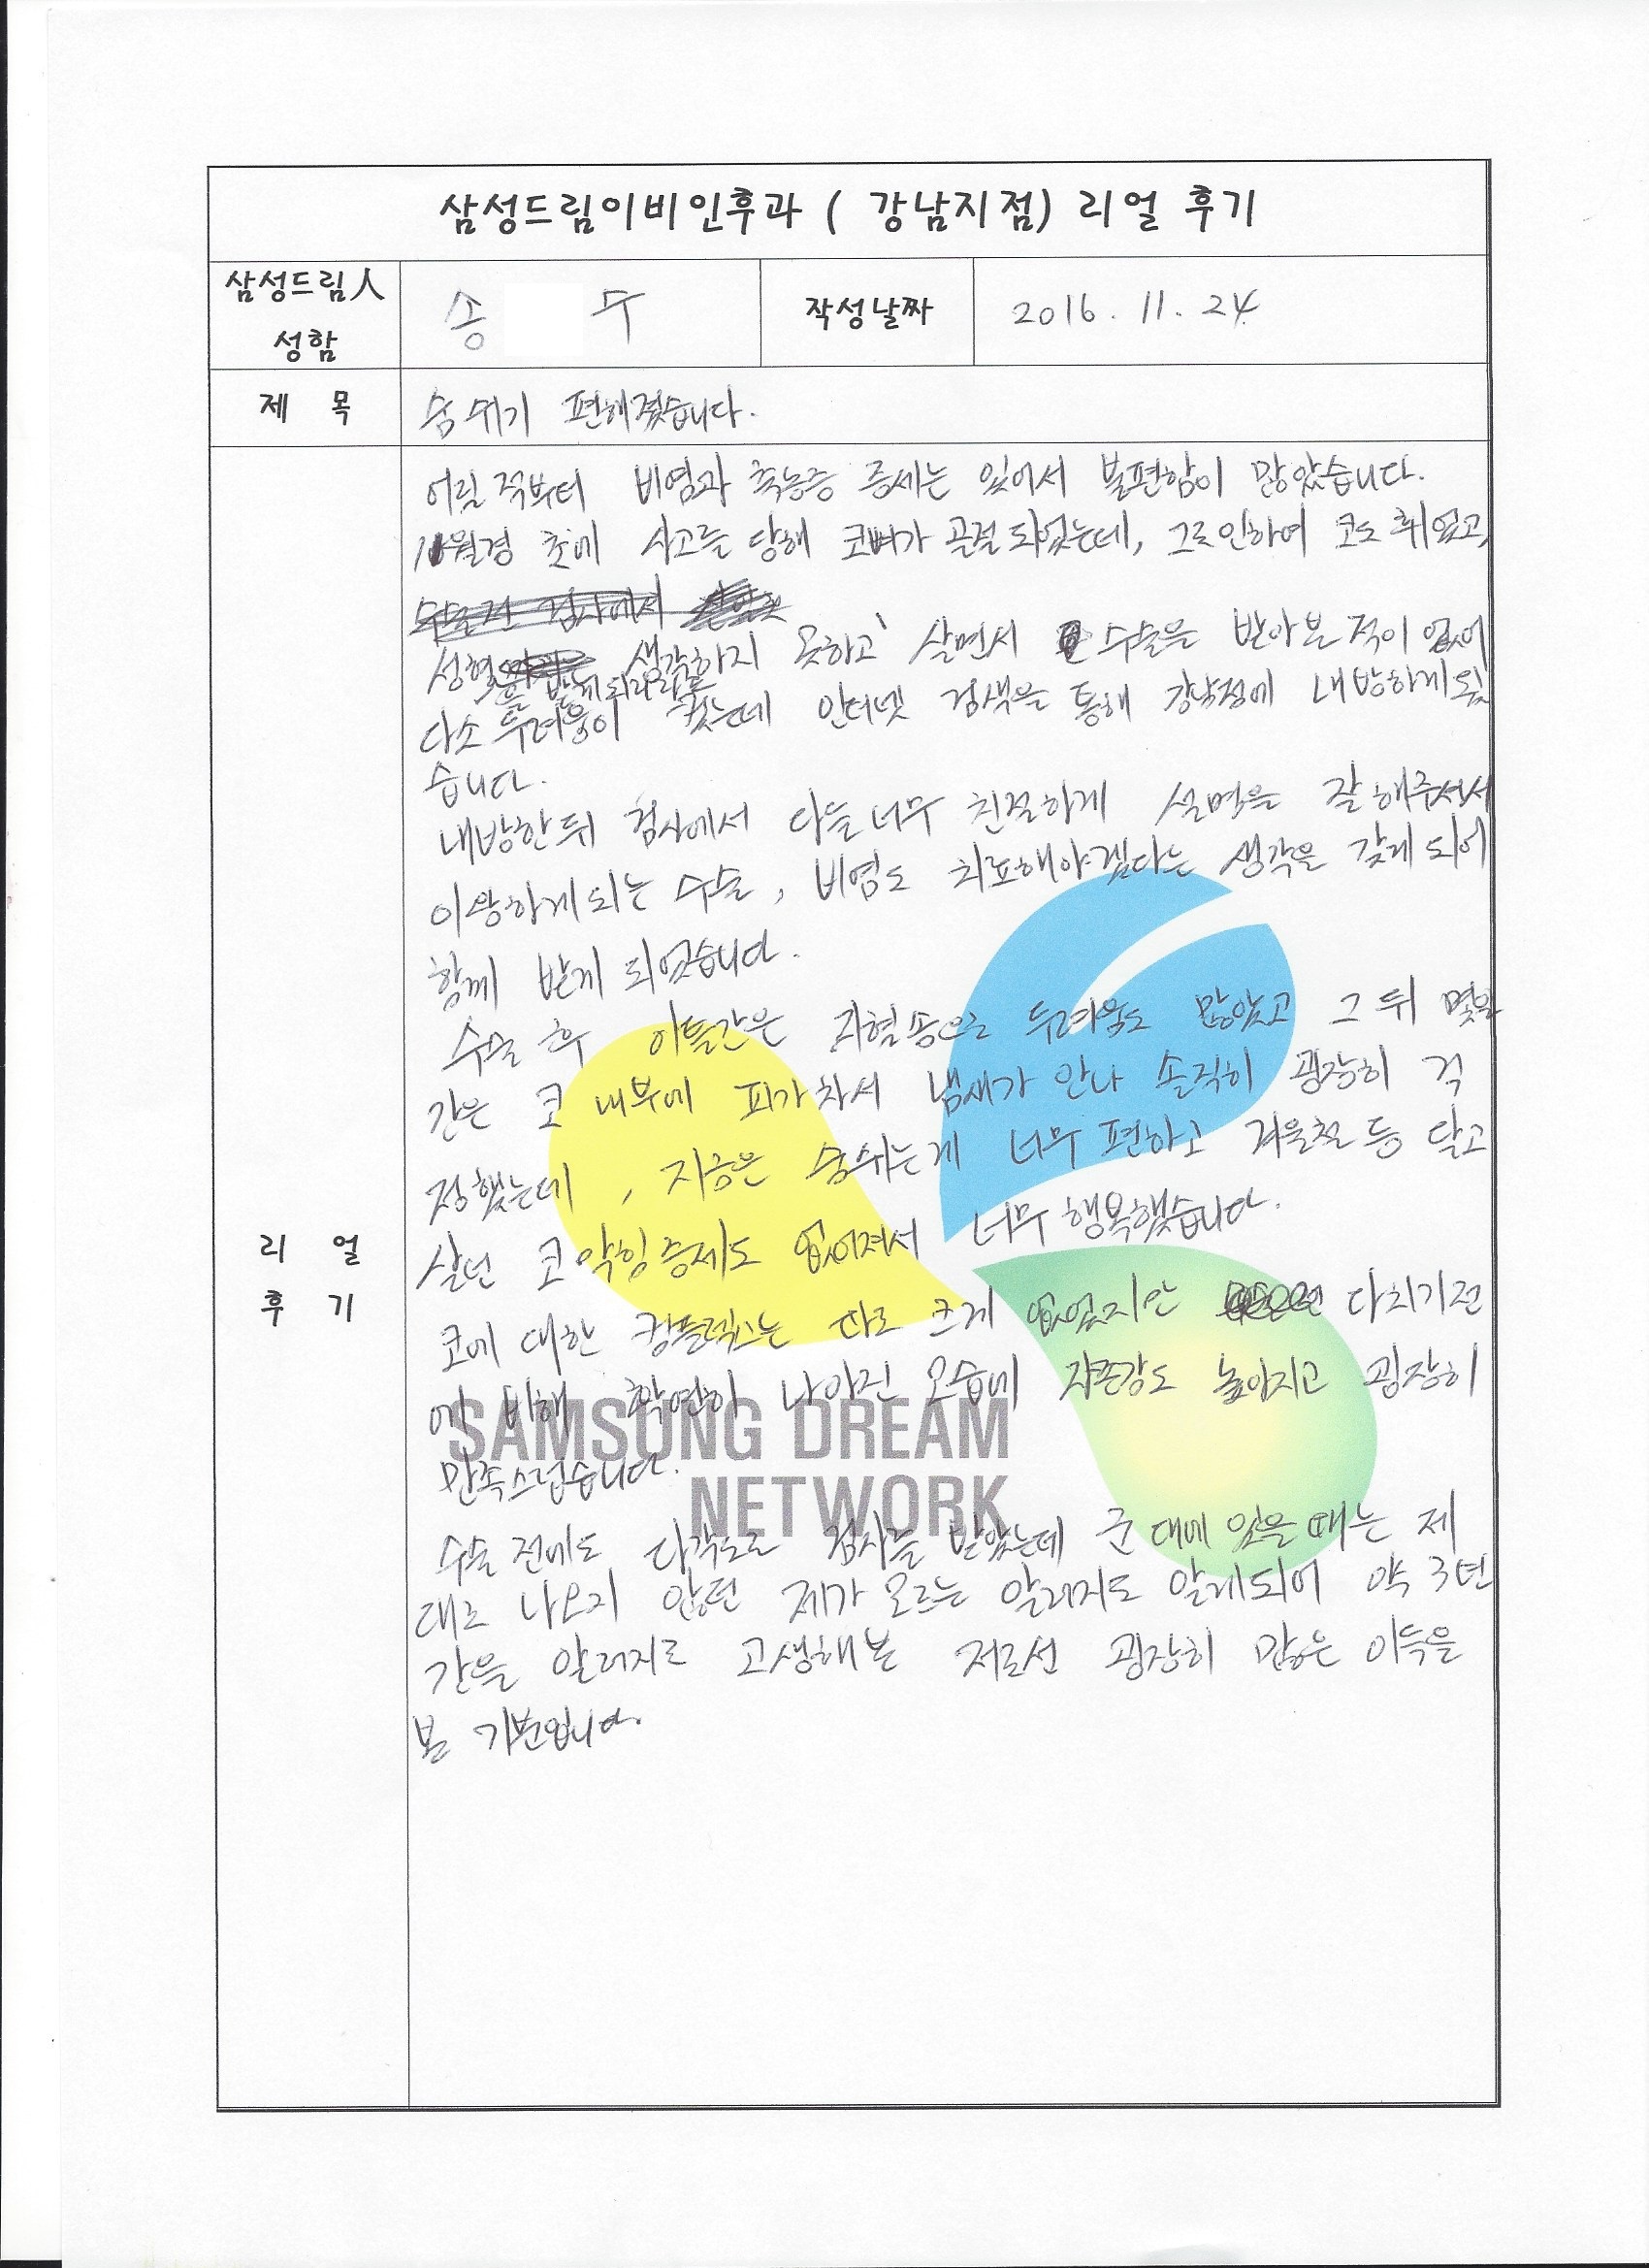 삼성드림이비인후과 ( 강남지점) 리얼 후기
삼성드림人
성함
송 수
작성날짜
2016. 11. 24
제 목
숨쉬기 편해졌습니다.
리 얼
후 기
어릴적부터 비염과 축농증 증세는 있어서 불편함이 많았습니다.
월경 초에 사고를 당해 코뼈가 골절되었는데, 그로인하여 코도 휘었고,
수술전 검사에서
성형 생각하지 못하고 살면서 수술을 받아본적이 없어
을 받게되리라곤
다소 두려움이 컸는데 인터넷 검색을 통해 강남점에 내방하게됬
습니다.
내방한뒤 검사에서 다들너무 친절하게 설명을 잘해주셔서
이왕하게되는 수술, 비염도 치료해야겠다는 생각을 갖게되어
함께 받게 되었습니다.
수술 후 이틀간은 지혈솜으로 두려움도 많았고 그 뒤 몇일
간은 코 내부에 피가차서 냄새가 안나 솔직히 굉장히 걱
정했는데, 지금은 숨쉬는게 너무편하고 겨울철 등 달고
살던 코막힘증세도 없어져서 너무 행복했습니다.
코에 대한 컴플렉스는 따로 크게 없었지만 다치기전
에 비해 확연히 나아진 모습에 자존감도 높아지고 굉장히
만족스럽습니다.
수술전에도 다각도로 검사를 받았는데 군대에 있을때는 제
대로 나오지 않던 제가 모르는 알러지도 알게되어 약 3년
간을 알러지로 고생해본 저로선 굉장히 많은 이득을
본 기분입니다.
SAMSUNG DREAM
NETWORK